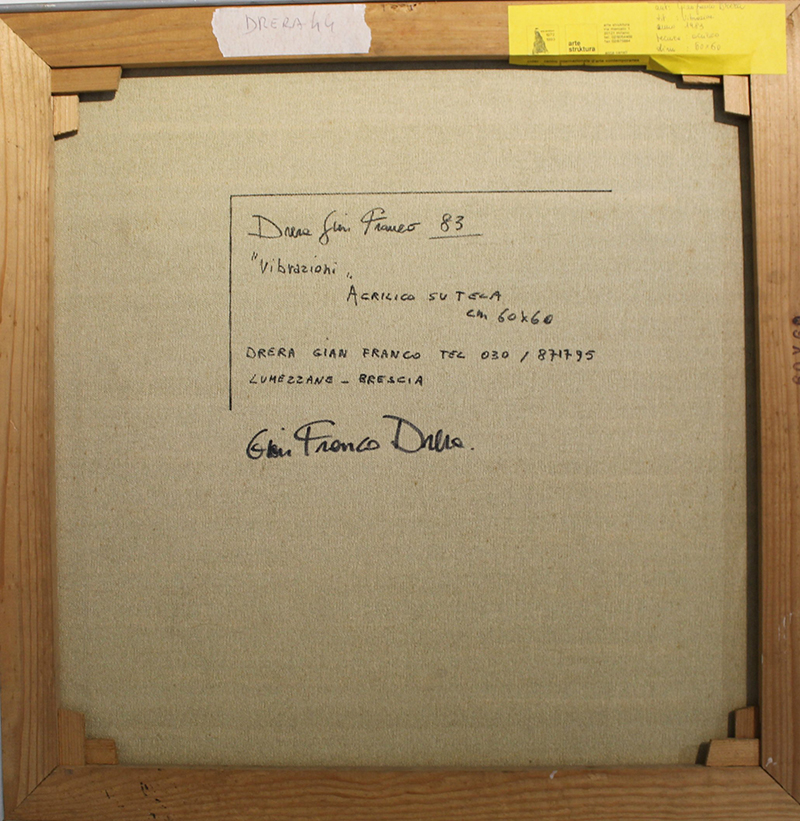 DRERA 44
arte
struktura
Drera Gian Franco 83
"Vibrazioni"
ACRILICO SU TELA
cm 60x60
DRERA GIAN FRANCO TEL 030 / 871795
LUMEZZANE - BRESCIA
Gian Franco Drera.